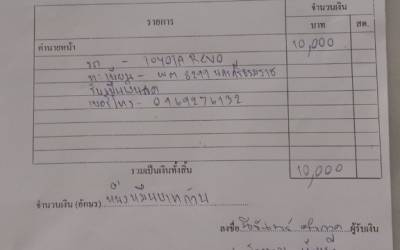 จำนวนเงิน
รายการ
บาท สต.
ค่านายหน้า 10,000
รถ - TOYOTA REVO
ทะเบียน - 8299 นครศรีธรรมราช
เบอร์โทร - 0969276132
รวมเป็นเงินทั้งสิ้น 10,000
จำนวนเงิน (อักษร) หนึ่งหมื่นบาทถ้วน
ลงชื่อ ผู้รับเงิน